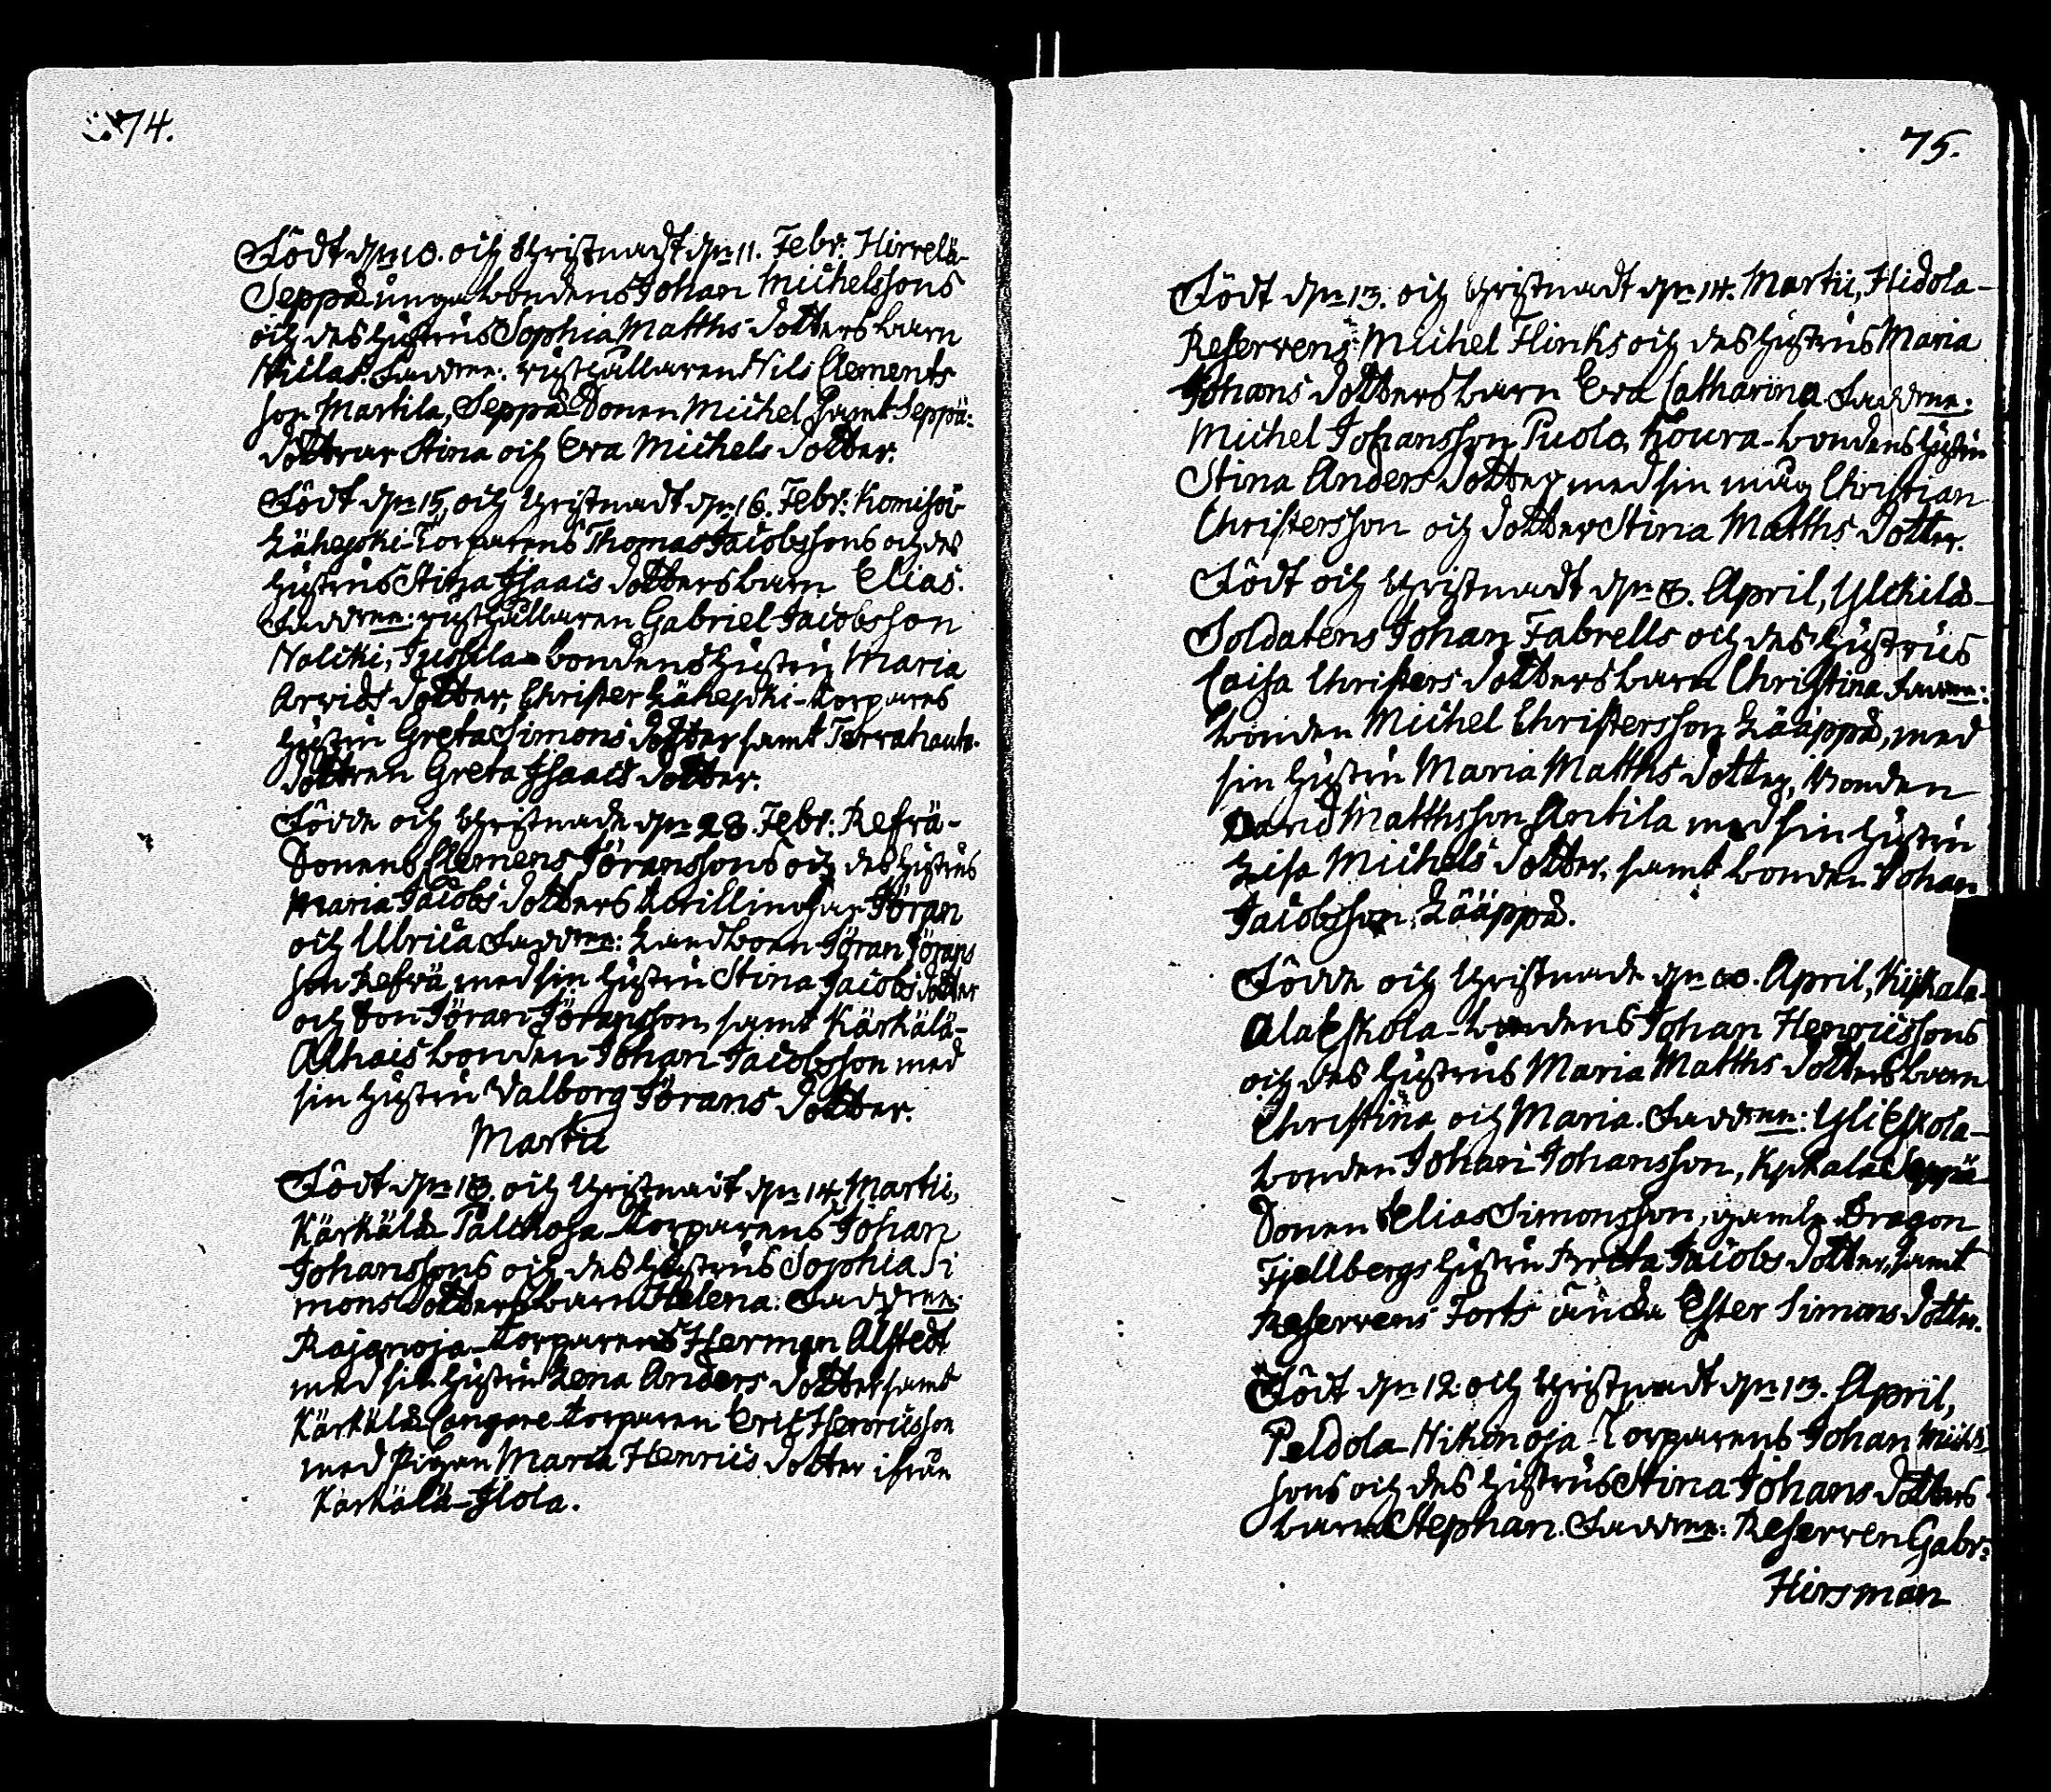 74.
Födt d. 10. och Christnadt d. 11. Febr. Hirvelä-
Seppä unga bondens Johan Michelssons
och des hustrus Sophia Matths dotters barn
Niclas. Faddrar: rusthållaren Nils Clements
son Martila, Seppä Sonen Michel samt Seppä-
döttrar Stina och Eva Michels dotter.
Födt d. 15, och Christnadt d. 16. Febr.
Torparens Thomas Jacobssons och des
hustrus Stina Isaacs dotters barn Elias.
Faddrar: rusthållaren Gabriel Jacobsson
Nolicki, Jussila-bondens hustru Maria
Arvids dotter, Christer Lähepski-torpares
hustru Greta Simons dotter samt
dottren Greta Isaacs dotter.
Födde och Christnade d. 28. Febr. Refvä-
Sonens Clemens Jöranssons och des hustrus
Maria Jacobs dotters tvillingar Jöran
och Ulrica Faddrar: Landboen Jöran Jörans
son Refvä med sin hustru Stina Jacobs dotter
och Son Jöran Jöransson, samt Kärkälä-
bonden Johan Jacobsson med
sin hustru Valborg Jörans dotter.
Martii
Födt d. 13. och Christnadt d. 14. Martii,
Kärkälä Torparens Johan
Johanssons och des hustrus Sophia Si
mons dotters barn Helena. Faddrar:
Rajanoja-torparen Herman Alstedt
med sin hustru Lena Anders dotter samt
Kärkälä Torparen Eric Henricsson
med Pigan Maria Henrics dotter ifrån
Kärkälä-Ilola.
75.
Födt d. 13. och Christnadt d. 14. Martii, Hidola-
Reservens Michel Flinks och des hustrus Maria
Johans dotters barn Eva Catharina Faddrar:
Michel Johansson Puolo, Koura-bondens hustru
Stina Anders dotter med sin måg Christian
Christersson och dotter Stina Matths dotter.
Födt och Christnadt d. 8. April, Ylikilä-
Soldatens Johan Fabrells och des hustrus
Caisa Christers dotters barn Christina Faddrar:
bonden Michel Christersson Lääppä, med
sin hustru Maria Matths dotter, bonden
David Matthsson Antila med sin hustru
Lisa Michels dotter, samt bonden Johan
Jacobsson, Lääppä.
Födde och Christnade d. April,
AlaEskola-bondens Johan Henricssons
och des hustrus Maria Matths dotters barn
Christina och Maria. Faddrar: YliEskola-
bonden Johan Johansson, Seppä
Sonen Elias Simonsson, gamle Dragon
Fjellbergs hustru Brita Jacobs dotter, samt
Reservens Forts änka Ester Simons dotter.
Födt d. 12. och Christnadt d. 13. April,
Peldola Nikonoja-Torparens Johan Michels
sons och des hustrus Stina Johans dotters
barn Stephan. Faddrar: Reserven Gabr:
Hirsman